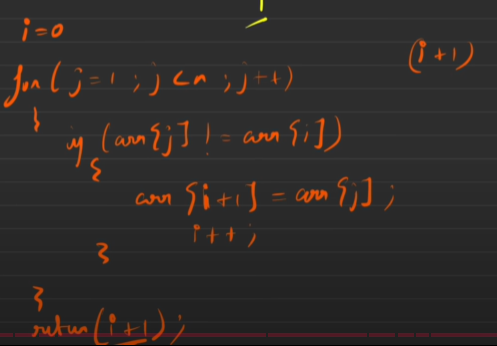 i=0
(i+1)
for(j=1;j<n;j++)
{
if (arr[j]!=arr[i])
{
arr[i+1]=arr[j];
i++;
}
}
return(i+1);